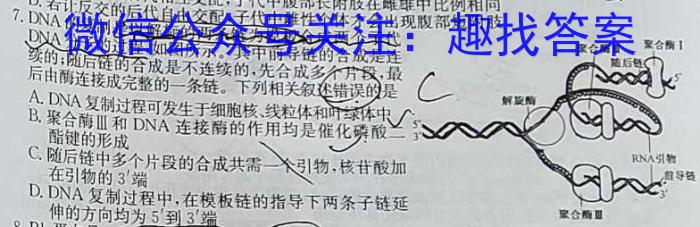 D.若让反交的后代
代中腹部长附肢在雌雄中比例相同
7. DNA
出现腹部
微信公众号关注：趣找答案
所示。其中前导链的合成是连
续的；随后链的合成是不连续的，先合成多个片段，最
后由酶连接成完整的一条链。下列相关叙述错误的是
A. DNA复制过程可发生于细胞核、线粒体和叶绿体中
B. 聚合酶Ⅲ和 DNA 连接酶的作用均是催化磷酸二
酯键的形成
C. 随后链中多个片段的合成共需一个引物，核苷酸加
在引物的3′端
D. DNA 复制过程中，在模板链的指导下两条子链延
伸的方向均为5′到3′端
聚合酶Ⅰ
随后链
解旋酶
5′
3′
RNA引物
前导链
聚合酶Ⅲ
C